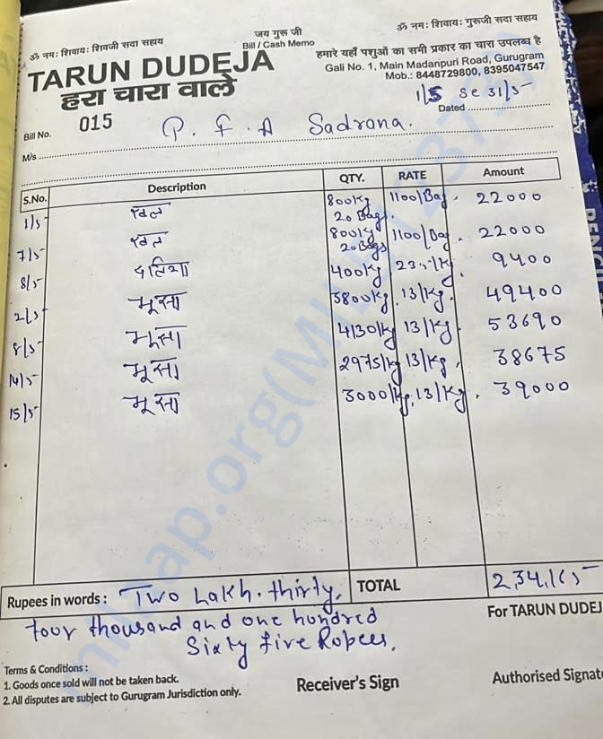 ॐ नमः शिवायः शिवजी सदा सहाय
जय गुरू जी
ॐ नमः शिवायः गुरूजी सदा सहाय
Bill / Cash Memo
TARUN DUDEJA
हरा चारा वाले
हमारे यहाँ पशुओं का सभी प्रकार का चारा उपलब्ध है
Gali No. 1, Main Madanpuri Road, Gurugram
Mob.: 8448729800, 8395047547
1/5 se 31/5
Bill No. 015
Dated
M/s P. F. A Sadrana.
S.No. Description QTY. RATE Amount
1/5 खल 800kg 20 Bags. 1100/Bag. 22000
7/5 खल 800kg 20 Bags 1100/Bag. 22000
8/5 दलिया 400kg 9400
2/5 भूसा 3800kg 13/kg. 49400
8/5 भूसा 4130/kg 13/kg. 53690
14/5 भूसा 2975/kg 13/kg. 38675
15/5 भूसा 3000/kg. 13/kg. 39000
TOTAL 2,34,165-
Rupees in words: Two Lakh. thirty,
four thousand and one hundred
Sixty five Rupees.
For TARUN DUDEJ
Terms & Conditions :
1. Goods once sold will not be taken back.
2. All disputes are subject to Gurugram Jurisdiction only.
Receiver's Sign
Authorised Signat
PENCIL